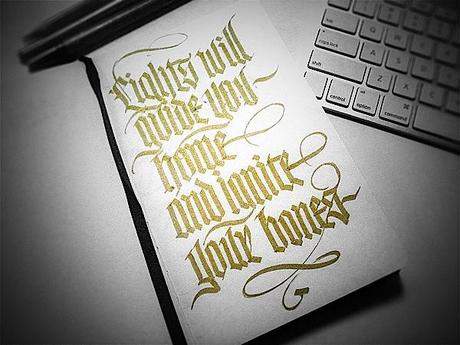 Lights will
guide you
home
and ignite
your bones
caps lock
A
S
D
F
shift
Z
X
C
V
control
option
command